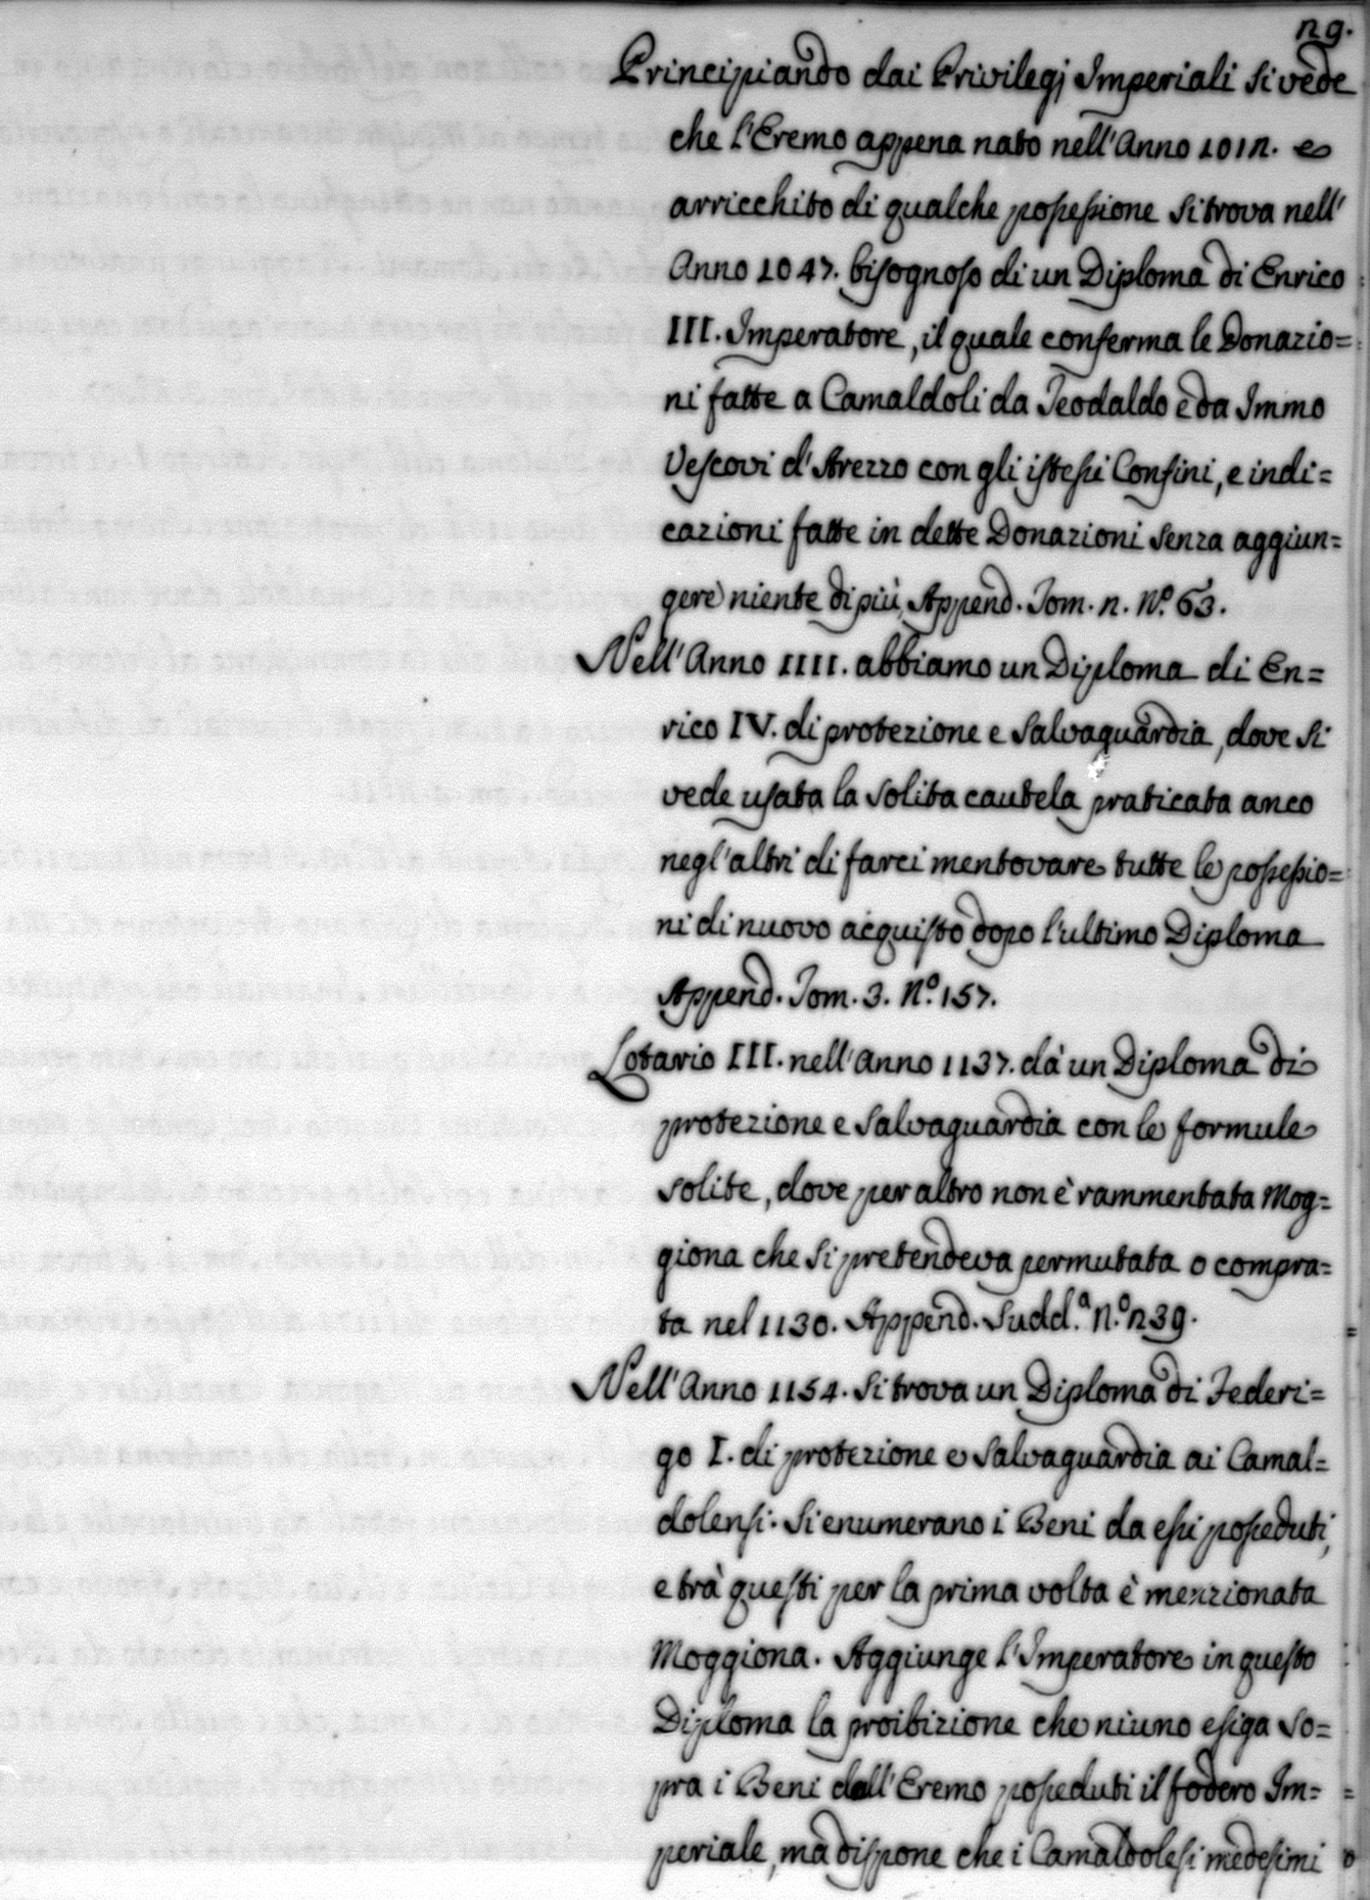 29.
Principiando dai Privilegj Imperiali si vede
che l'Eremo appena nato nell'Anno 1012. e
arricchito di qualche possessione si trova nell'
Anno 1047. bisognoso di un Diploma di Enrico
III. Imperatore, il quale conferma le Donazio=
ni fatte a Camaldoli da Teodaldo e da Immo
Vescovi d'Arezzo con gli istessi Confini, e indi=
cazioni fatte in dette Donazioni senza aggiun=
gere niente di più, Append. Tom. 2. N.º 63.
Nell'Anno 1111. abbiamo un Diploma di En=
rico IV. di protezione e salvaguardia, dove si
vede usata la solita cautela praticata anco
negl'altri di farci mentovare tutte le possessio=
ni di nuovo acquisto dopo l'ultimo Diploma
Append. Tom. 3. N.º 157.
Lotario III. nell'Anno 1137. dà un Diploma di
protezione e salvaguardia con le formule
solite, dove per altro non è rammentata Mog=
giona che si pretendeva permutata o compra=
ta nel 1130. Append. Sudd.ª N.º 239.
Nell'Anno 1154. si trova un Diploma di Federi=
go I. di protezione e salvaguardia ai Camal=
dolensi. Si enumerano i Beni da essi posseduti,
e trà questi per la prima volta è menzionata
Moggiona. Aggiunge l'Imperatore in questo
Diploma la proibizione che niuno esiga so=
pra i Beni dall'Eremo posseduti il fodero Im=
periale, ma dispone che i Camaldolesi medesimi